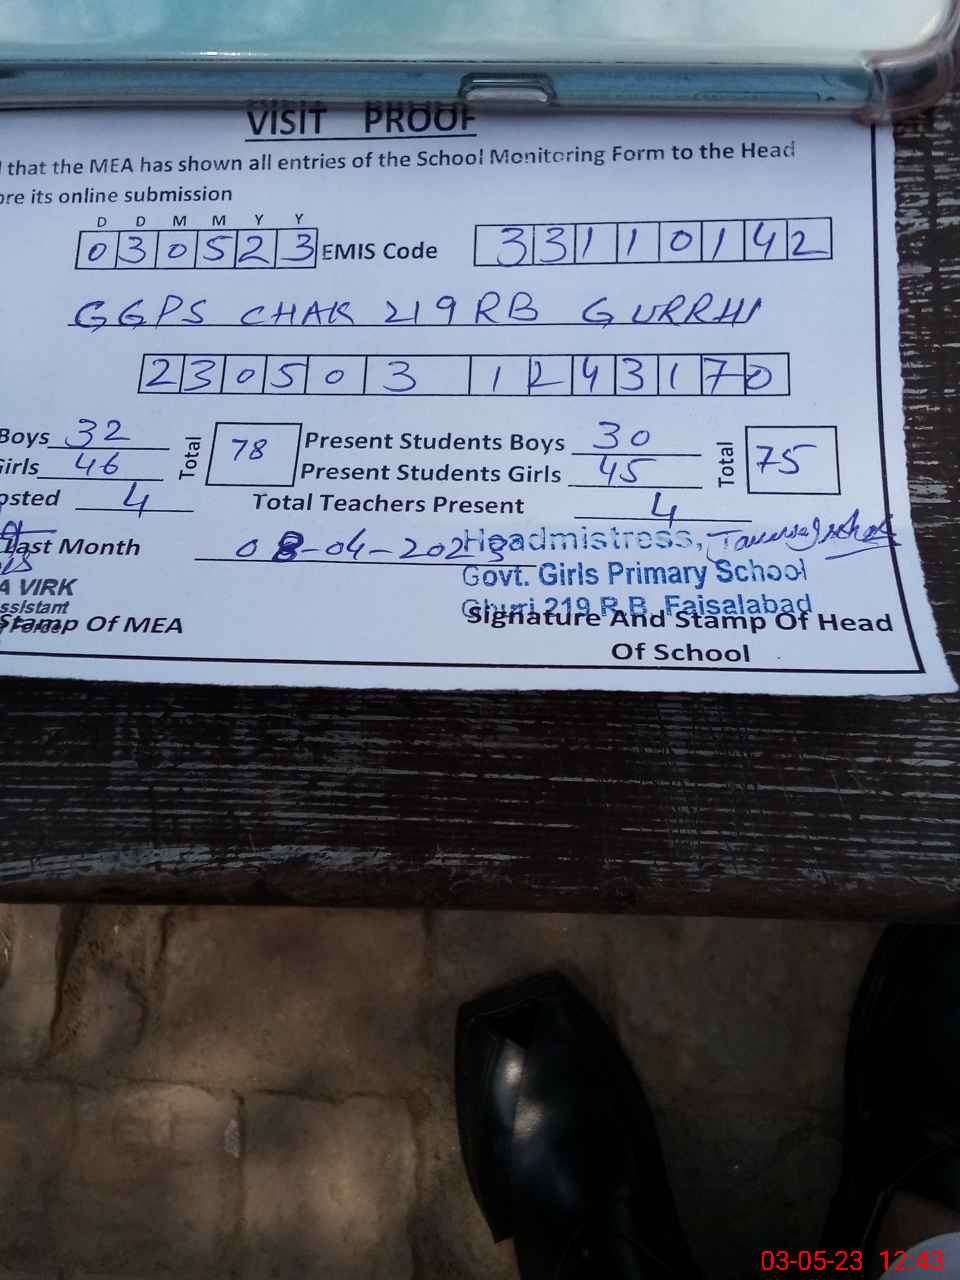 VISIT PROOF
that the MEA has shown all entries of the School Monitoring Form to the Head
ore its online submission
D D M M Y Y
030523 EMIS Code 33110142
GGPS CHAK 219 RB GURRHI
2305031243170
Boys 32 Total 78 Present Students Boys 30 Total 75
Girls 46 Present Students Girls 45
osted 4 Total Teachers Present 4
Last Month 08-04-2023
Headmistress,
Govt. Girls Primary School
Ghurri 219 R.B. Faisalabad
A VIRK
ssistant
Stamp Of MEA Signature And Stamp Of Head
Of School
03-05-23 12:43